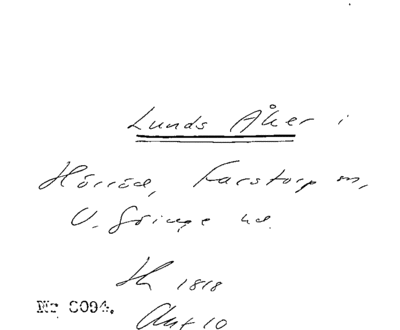 Lunds Åker i
Hörröd, Farstorp sn,
V. Göinge hd.
Th 1818
Ant 10
Nr 8094.